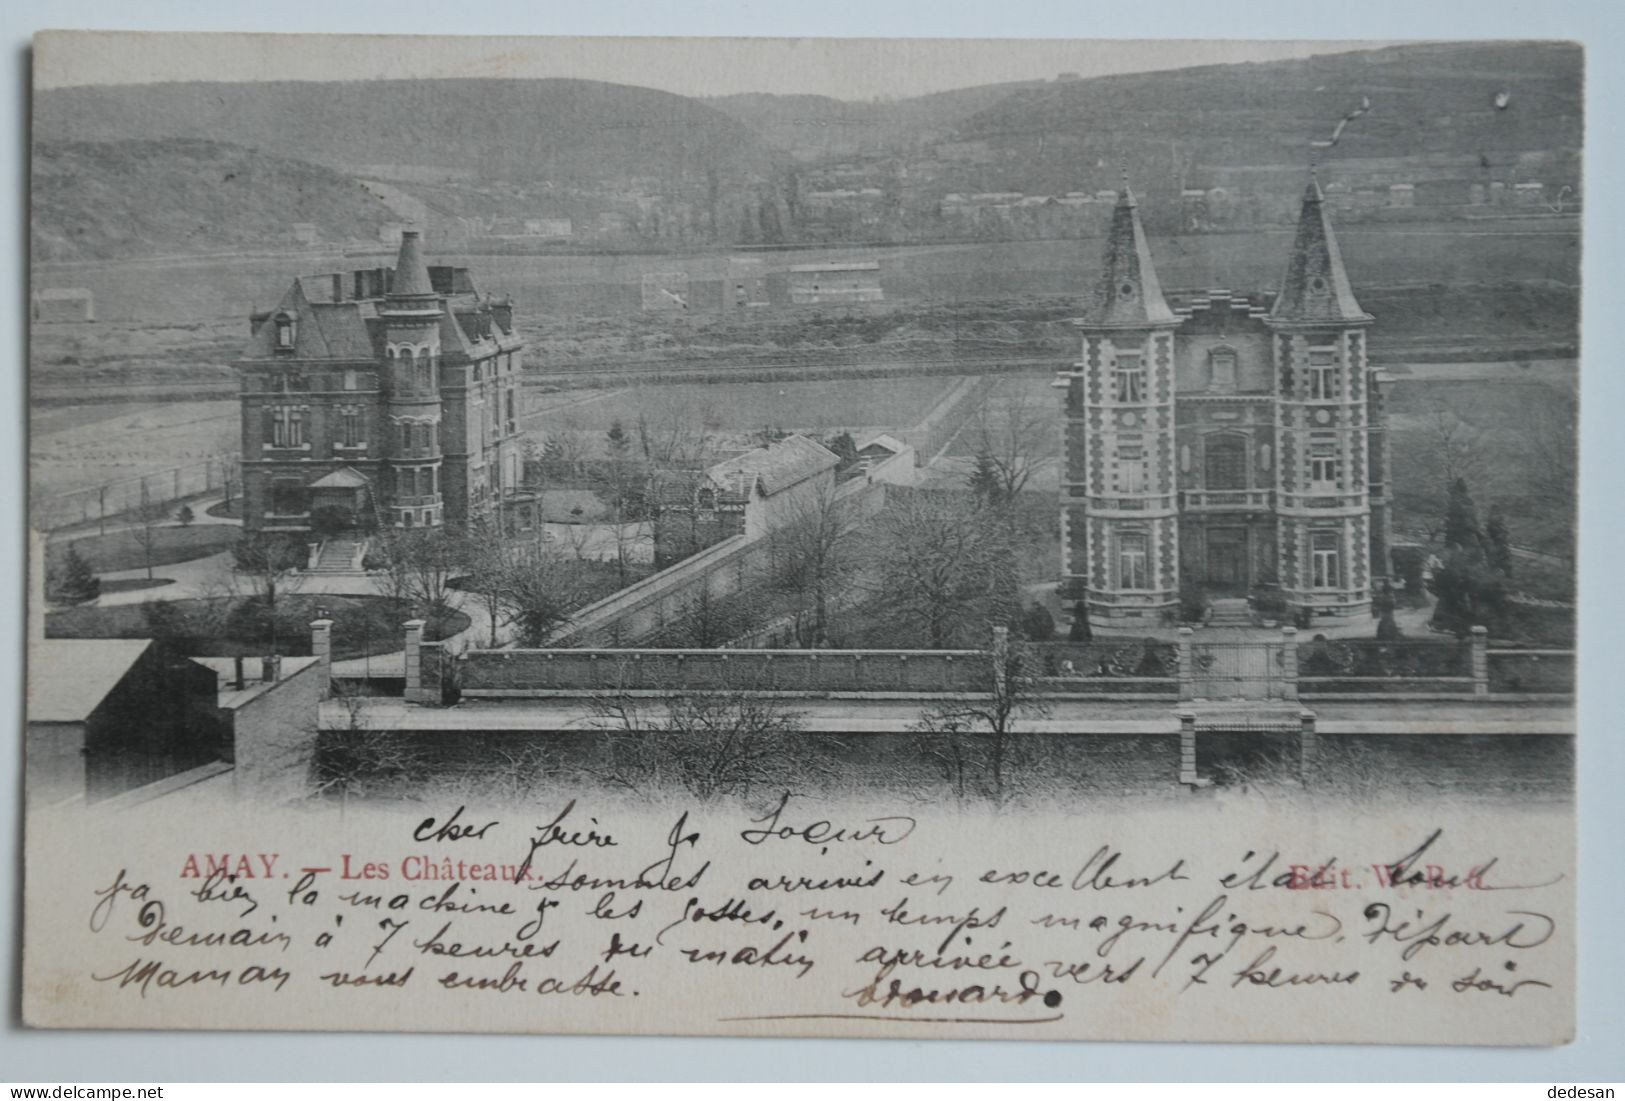 cher frère & Soeur
AMAY. — Les Châteaux.
Edit. W. B. L.
sommes arrivés en excellent état tout
va bien la machine & les gosses, un temps magnifique. Départ
Demain à 7 heures du matin arrivée vers 7 heures du soir
Maman vous embrasse.
Edouard
dedesan